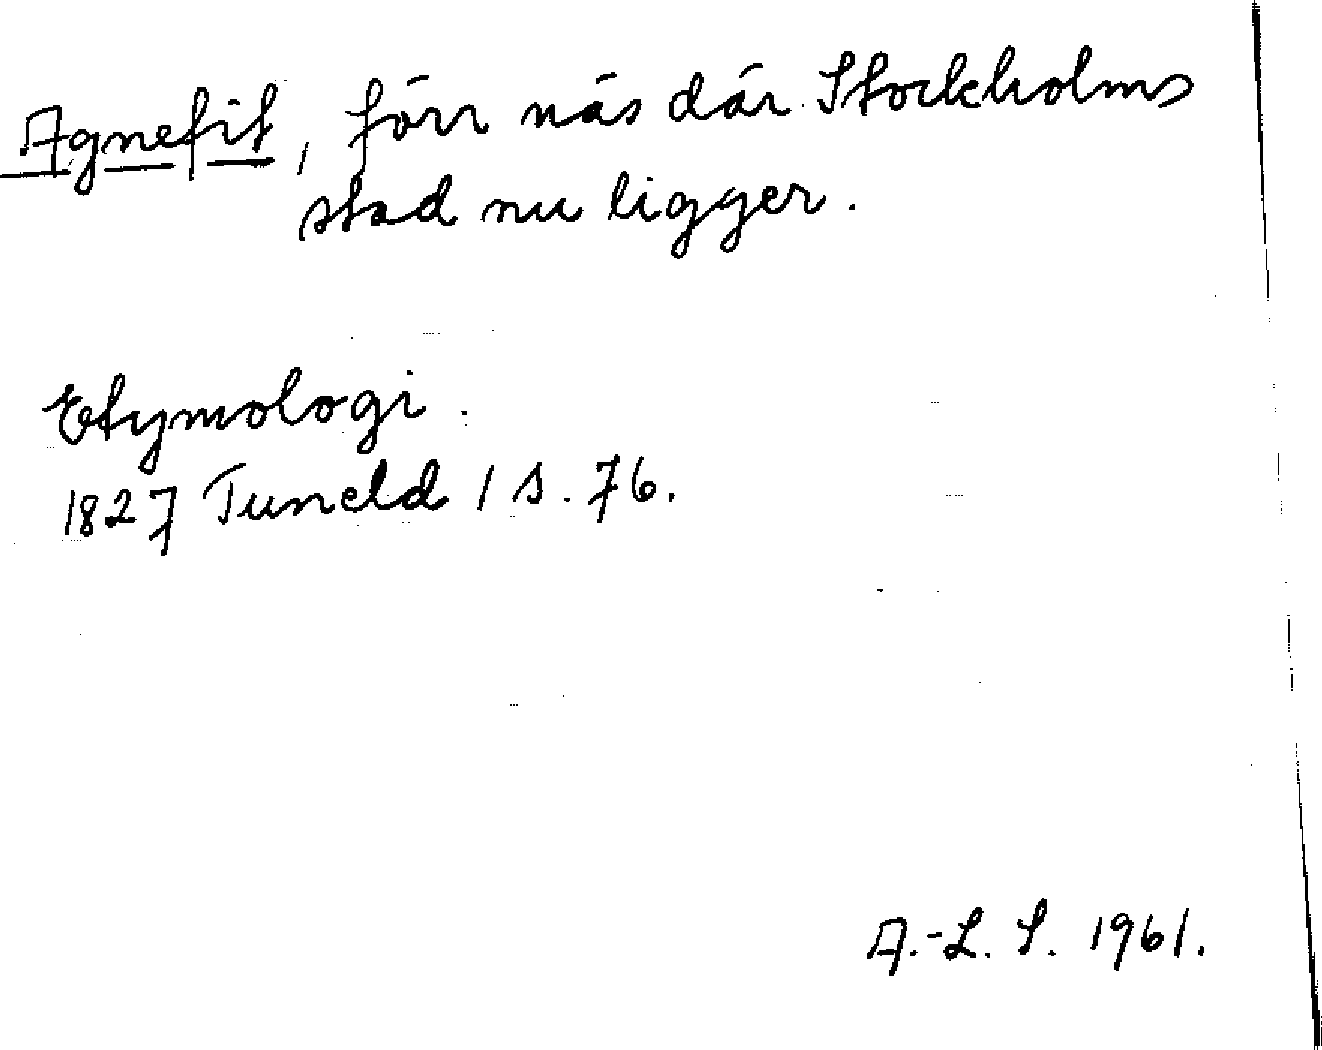 Agnefit, förr näs där Stockholms
stad nu ligger.
Etymologi.
1827 Tuneld 1 s. 76.
A.-L. S. 1961.